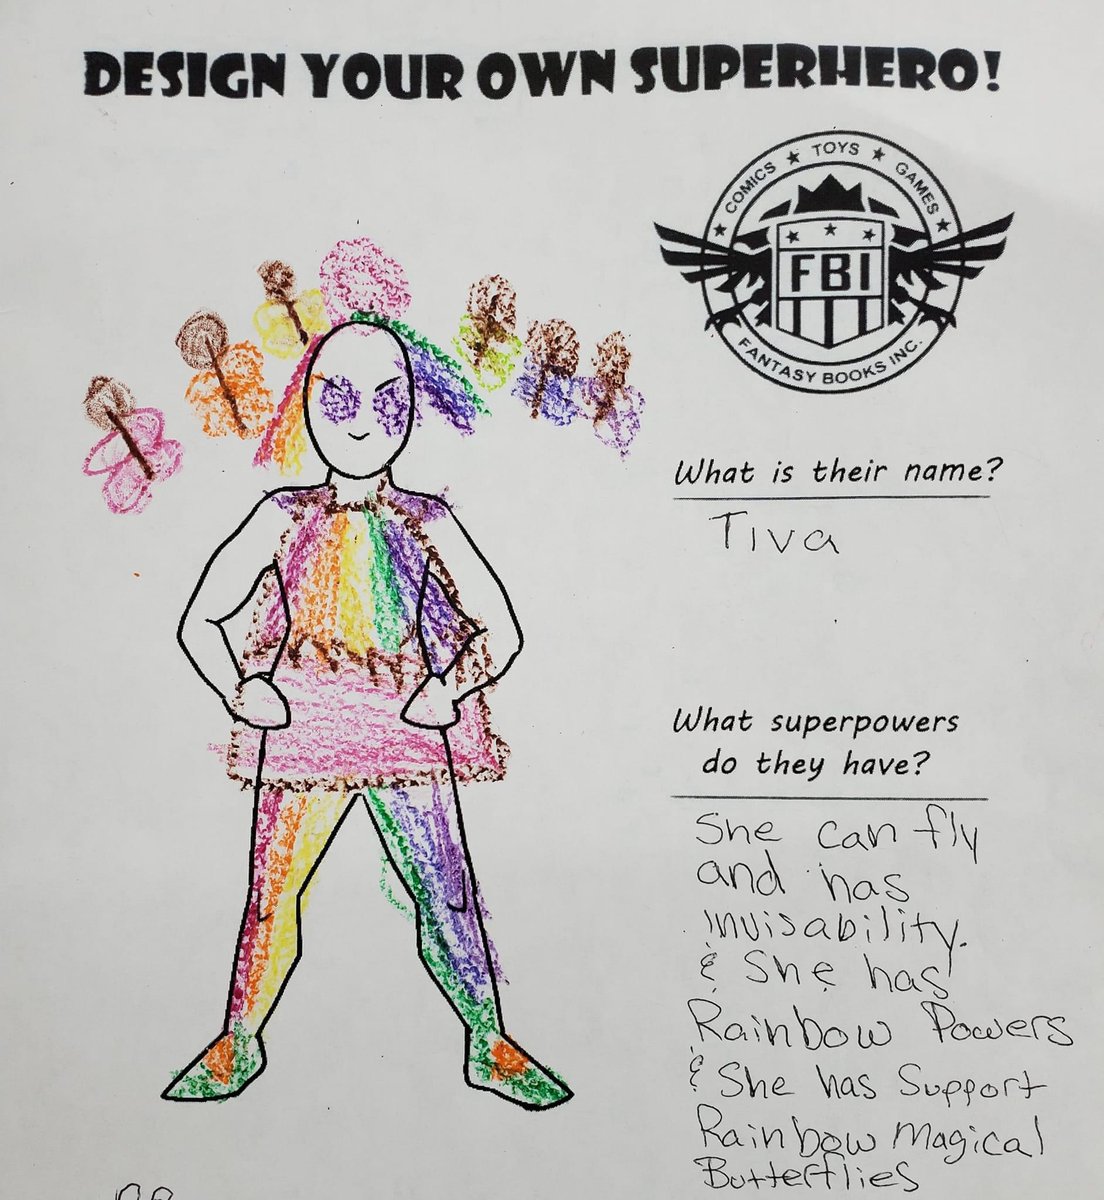 DESIGN YOUR OWN SUPERHERO!
COMICS ★ TOYS ★ GAMES
FBI
FANTASY BOOKS INC.
What is their name?
Tiva
What superpowers
do they have?
She can fly
and has
invisability.
& She has
Rainbow Powers
& She has Support
Rainbow Magical
Butterflies